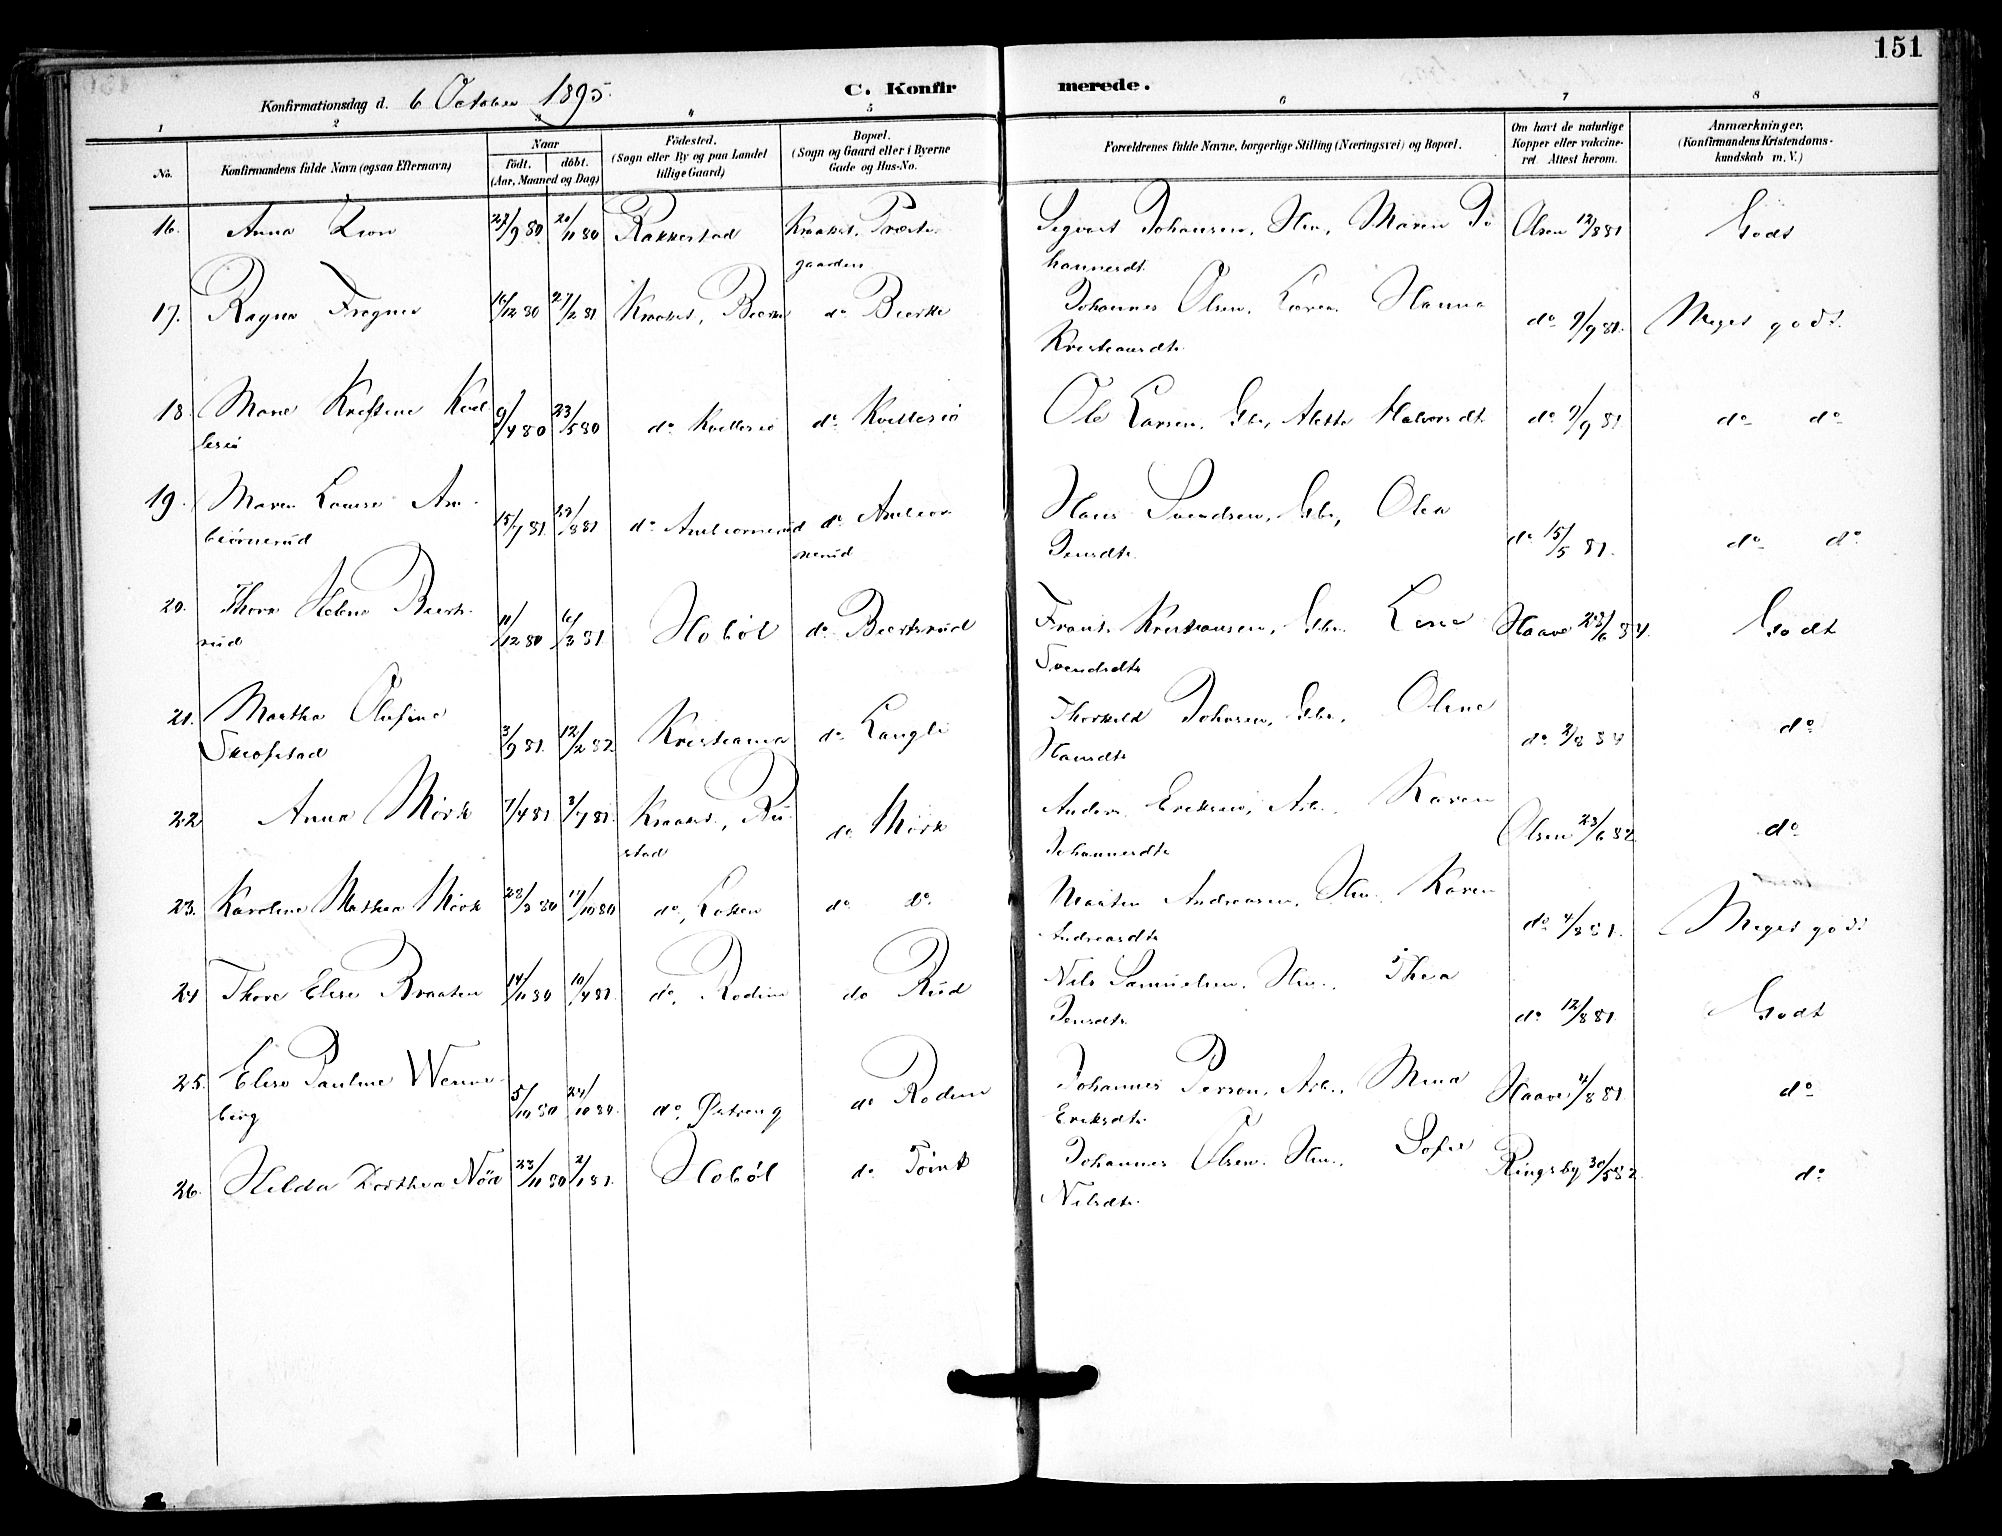 151
Konfirmationsdag d. 6 October 1895.
C. Konfirmerede.
1 2 3 4 5 6 7 8
No.
Konfirmandens fulde Navn (ogsaa Efternavn)
Naar
født, døbt.
(Aar, Maaned og Dag)
Födested.
(Sogn eller By og paa Landet
tillige Gaard)
Bopæl.
(Sogn og Gaard eller i Byerne
Gade og Hus-No.
Forældrenes fulde Navne, borgerlige Stilling (Næringsvei) og Bopæl.
Om havt de naturlige
Kopper eller vakcine-
ret. Attest herom.
Anmærkninger.
(Konfirmandens Kristendoms-
kundskab m. V.)
16. Anna 27/9 80. 20/11 80 Rakkestad Kraakst. Præste- Sigvart Johansen, Hm, Maren Jo Olsen 12/8 81 Godt
gaarden hannesdt.
17. Ragna Fregner 16/12 80 27/2 81 Kraakst, Bjerke do Bjerke Johannes Olsen, Hanna do 9/9 81. Meget godt.
Kristiansdt.
18. Marie Kristine Kvel 9/4 80 23/5 80 do Kvellesiø do Kvellesiø Ole Larsen, Gbr, Alette Halvorsdt. do 9/9 81 do do
lesiø
19. Maren Lovise Arn- 15/7 81 /8 81 do Arnbiørnerud do Arnbiør Hans Svendsen, Gbr, Olea do 15/5 81. do do
biørnerud nerud Jensdt.
20. Thora Helene 11/12 80 6/3 81 Hobøl do Frants Kristiansen, Gbr. Lina Haave 23/6 84. Godt
rud Svendsdt.
21. Martha Olufine 3/9 81. 12/2 82 Kristiania do Langli Thorkild Johnsen, Gbr. Oline do 2/8 84 do
Skiøfstad Hansdt.
22 Anna Mörk 7/4 81 3/7 81. Kraakst., Ru- do Mörk Anders Eriksen, Arb., Karen Olsen 23/6 82 do
stad Johannesdt.
23. Karoline Mathea Mörk 28/3 80 17/10 80 do, Løken do do Martin Andreasen, Hm. Karen do 4/8 81. Meget godt
Andreasdt.
24 Thora Elise Braaten 14/11 80 10/4 81. do, Rodim do Rud Nils Samuelsen, Hm., Thea do 12/8 81. Godt
Jensdt.
25. Elise Pauline Wenne- 5/10 80 24/10 80. do, Østreng do Rodim Johannes Person, Arb., Mina Haave /8 81. do
berg Eriksdt.
26. Hilda Dorthea Nöa 23/11 80 2/1 81. Hobøl do Toint Johannes Olsen. Hm., Sofie Ringsby 30/5 82 do
Nilsdt.